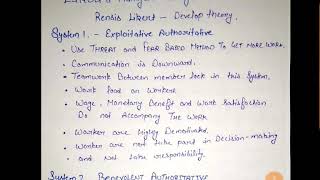 Rensis Likert - Develop theory.
System 1. - Exploitative Authoritative
• Use THREAT and FEAR BASED METHOD TO GET MORE WORK.
• Communication is Downward.
• Teamwork Between member lack in this System.
• Work load on Workers
• Wage, Monetary Benefit and Work Satisfaction
Do not Accompany The WORK
• Worker are highly Demotivated.
• Worker are not take part in Decision-making
and not take responsibility.
System 2 BENEVOLENT AUTHORITATIVE